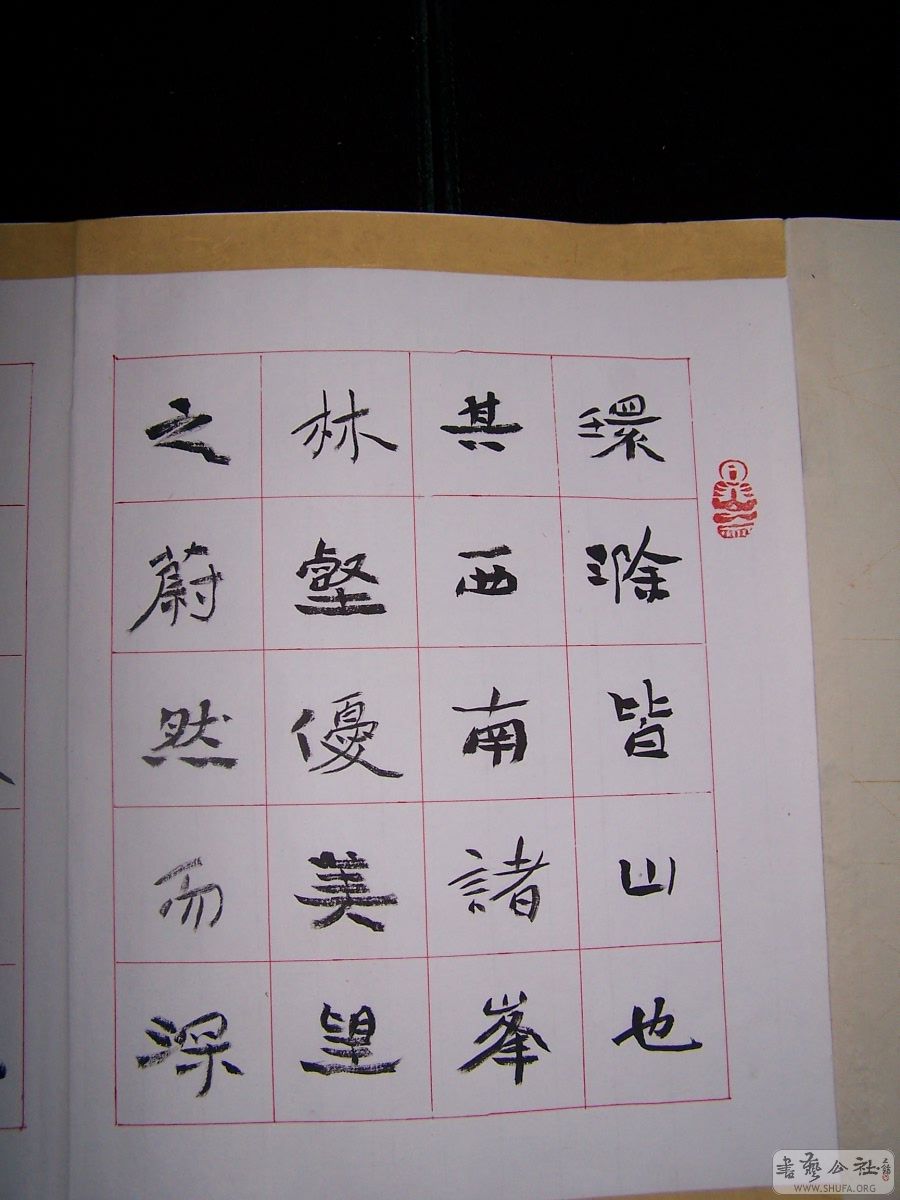 環滁皆山也
其西南諸峯
林壑優美望
之蔚然而深
書藝公社
WWW.SHUFA.ORG